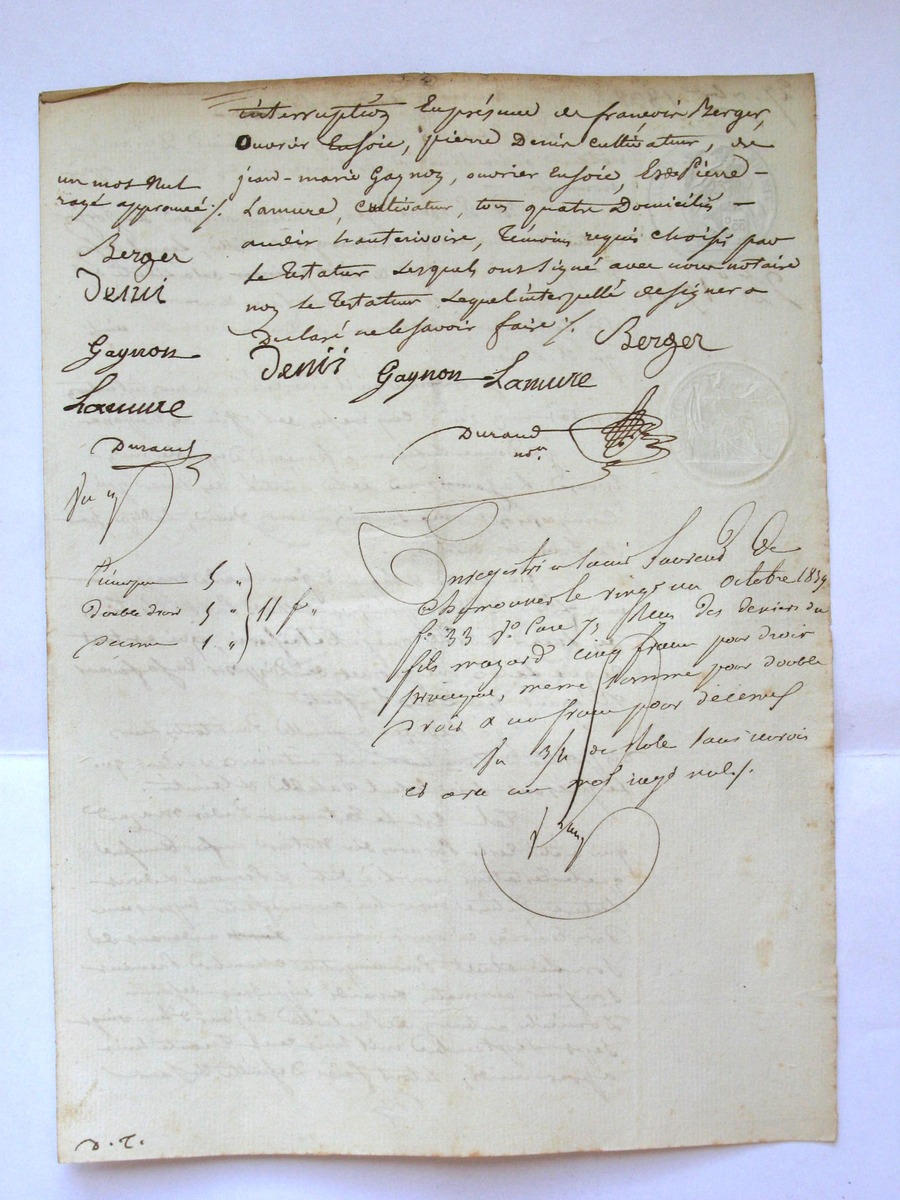 interruption En présence de françois Berger,
Ouvrier Ensoie, pierre Denis cultivateur, de
jean-marie Gagnon, ouvrier Ensoie, Et de Pierre
Lamure, Cultivateur, tous quatre Domiciliés
audit hauterivoire, témoins requis choisis par
le testateur Lesquels ont signé avec nous notaire
non le testateur Lequel interpellé de signer a
Declaré ne le savoir faire ./.
Berger
Denis Gagnon Lamure
Durand
nore
un mot Nul
rayé approuvé ./.
Berger
Denis
Gagnon
Lamure
Durand
Principal 5 "
Double droit 5 " 11 f "
Decime 1 "
Enregistré a Saint Laurent De
Chamousset le vingt un octobre 1839
fo 33 Vo Case 7, Reçu des deniers du
fils mazard cinq francs pour droit
principal, même somme pour double
droit & un franc pour décimes
de Role sans renvois
et avec un mot rayé nul ./.
D. T.